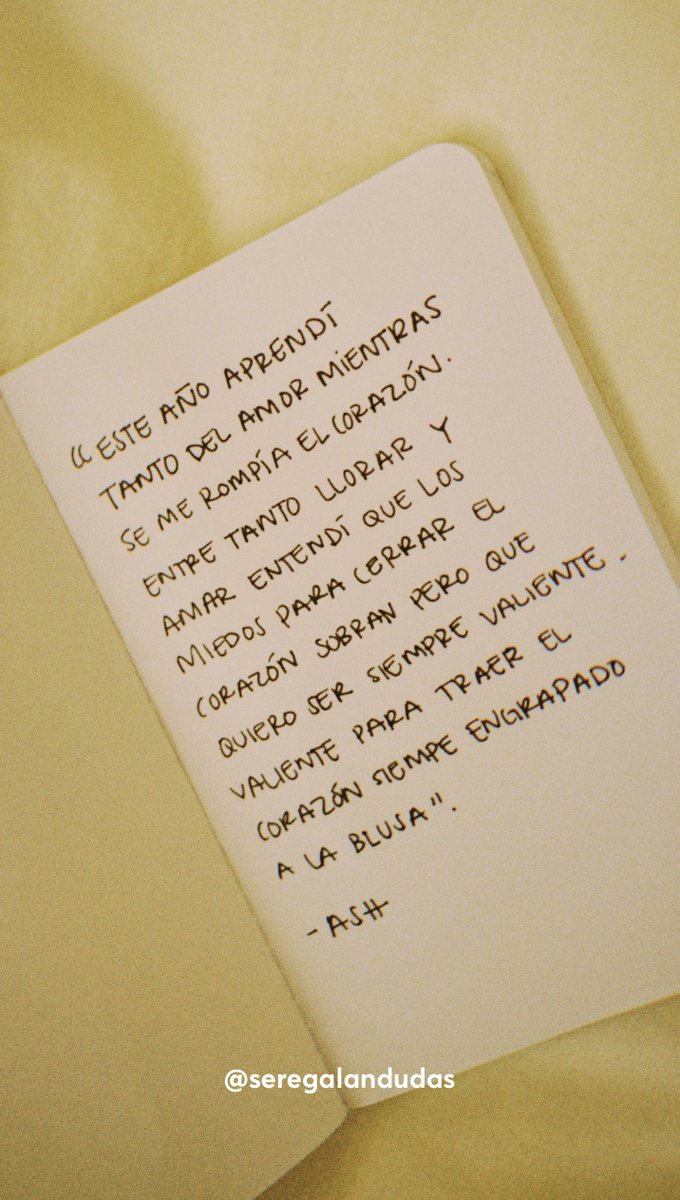 “ESTE AÑO APRENDÍ
TANTO DEL AMOR MIENTRAS
SE ME ROMPÍA EL CORAZÓN.
ENTRE TANTO LLORAR Y
AMAR ENTENDÍ QUE LOS
MIEDOS PARA CERRAR EL
CORAZÓN SOBRAN PERO QUE
QUIERO SER SIEMPRE VALIENTE.
VALIENTE PARA TRAER EL
CORAZÓN SIEMPE ENGRAPADO
A LA BLUSA”.
-ASH
@seregalandudas